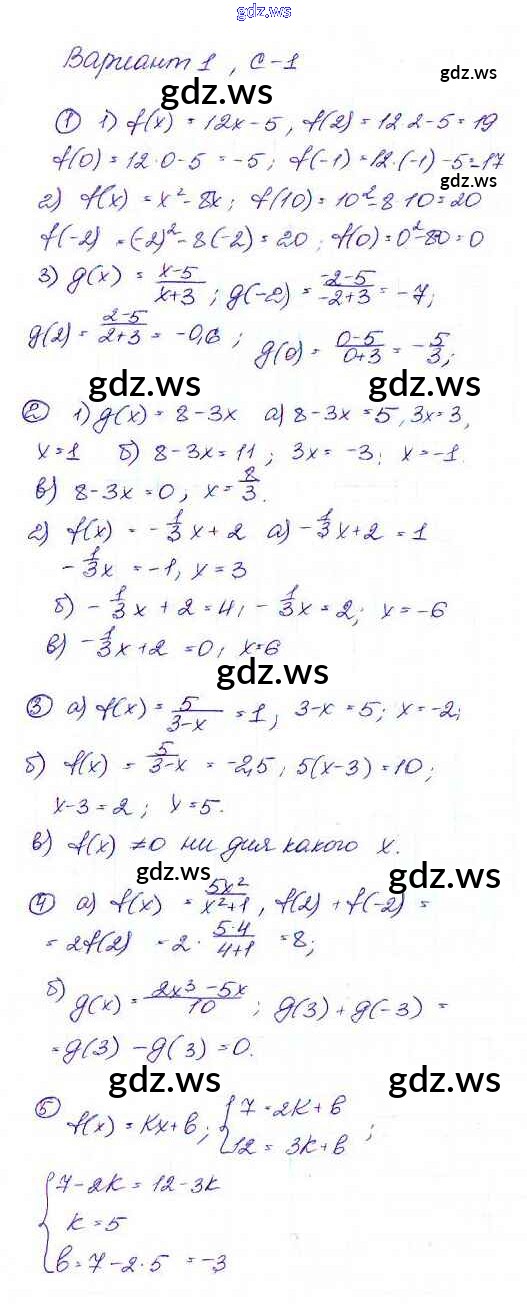 gdz.ws
Вариант 1, С-1
gdz.ws
gdz.ws
① 1) f(x) = 12x - 5, f(2) = 12·2 - 5 = 19
f(0) = 12·0 - 5 = -5; f(-1) = 12·(-1) - 5 = 17
gdz.ws
2) f(x) = x² - 8x; f(10) = 10² - 8·10 = 20
f(-2) = (-2)² - 8(-2) = 20; f(0) = 0² - 80 = 0
3) g(x) = (x-5)/(x+3); g(-2) = (-2-5)/(-2+3) = -7;
g(2) = (2-5)/(2+3) = -0,6; g(0) = (0-5)/(0+3) = -5/3;
gdz.ws gdz.ws
② 1) g(x) = 8 - 3x а) 8 - 3x = 5, 3x = 3,
x = 1 б) 8 - 3x = 11; 3x = -3; x = -1.
в) 8 - 3x = 0, x = 8/3.
2) f(x) = -1/3x + 2 а) -1/3x + 2 = 1
-1/3x = -1, x = 3
б) -1/3x + 2 = 4, -1/3x = 2; x = -6
в) -1/3x + 2 = 0, x = 6
gdz.ws
③ а) f(x) = 5/(3-x) = 1, 3 - x = 5; x = -2;
б) f(x) = 5/(3-x) = -2,5, 5(x-3) = 10;
x - 3 = 2; x = 5.
в) f(x) ≠ 0 ни для какого x.
gdz.ws gdz.ws
④ а) f(x) = 5x²/(x²+1), f(2) + f(-2) =
= 2f(2) = 2·(5·4)/(4+1) = 8;
gdz.ws
б) g(x) = (2x³ - 5x)/10; g(3) + g(-3) =
= g(3) - g(3) = 0.
gdz.ws gdz.ws
⑤ f(x) = kx + b; { 7 = 2k + b
12 = 3k + b ;
{ 7 - 2k = 12 - 3k
k = 5
b = 7 - 2·5 = -3